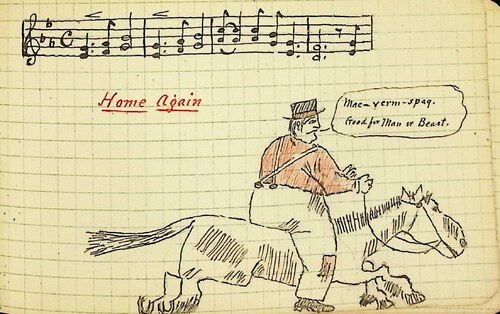 Home Again
Mac-yerm-spaq.
Good for Man or Beast.